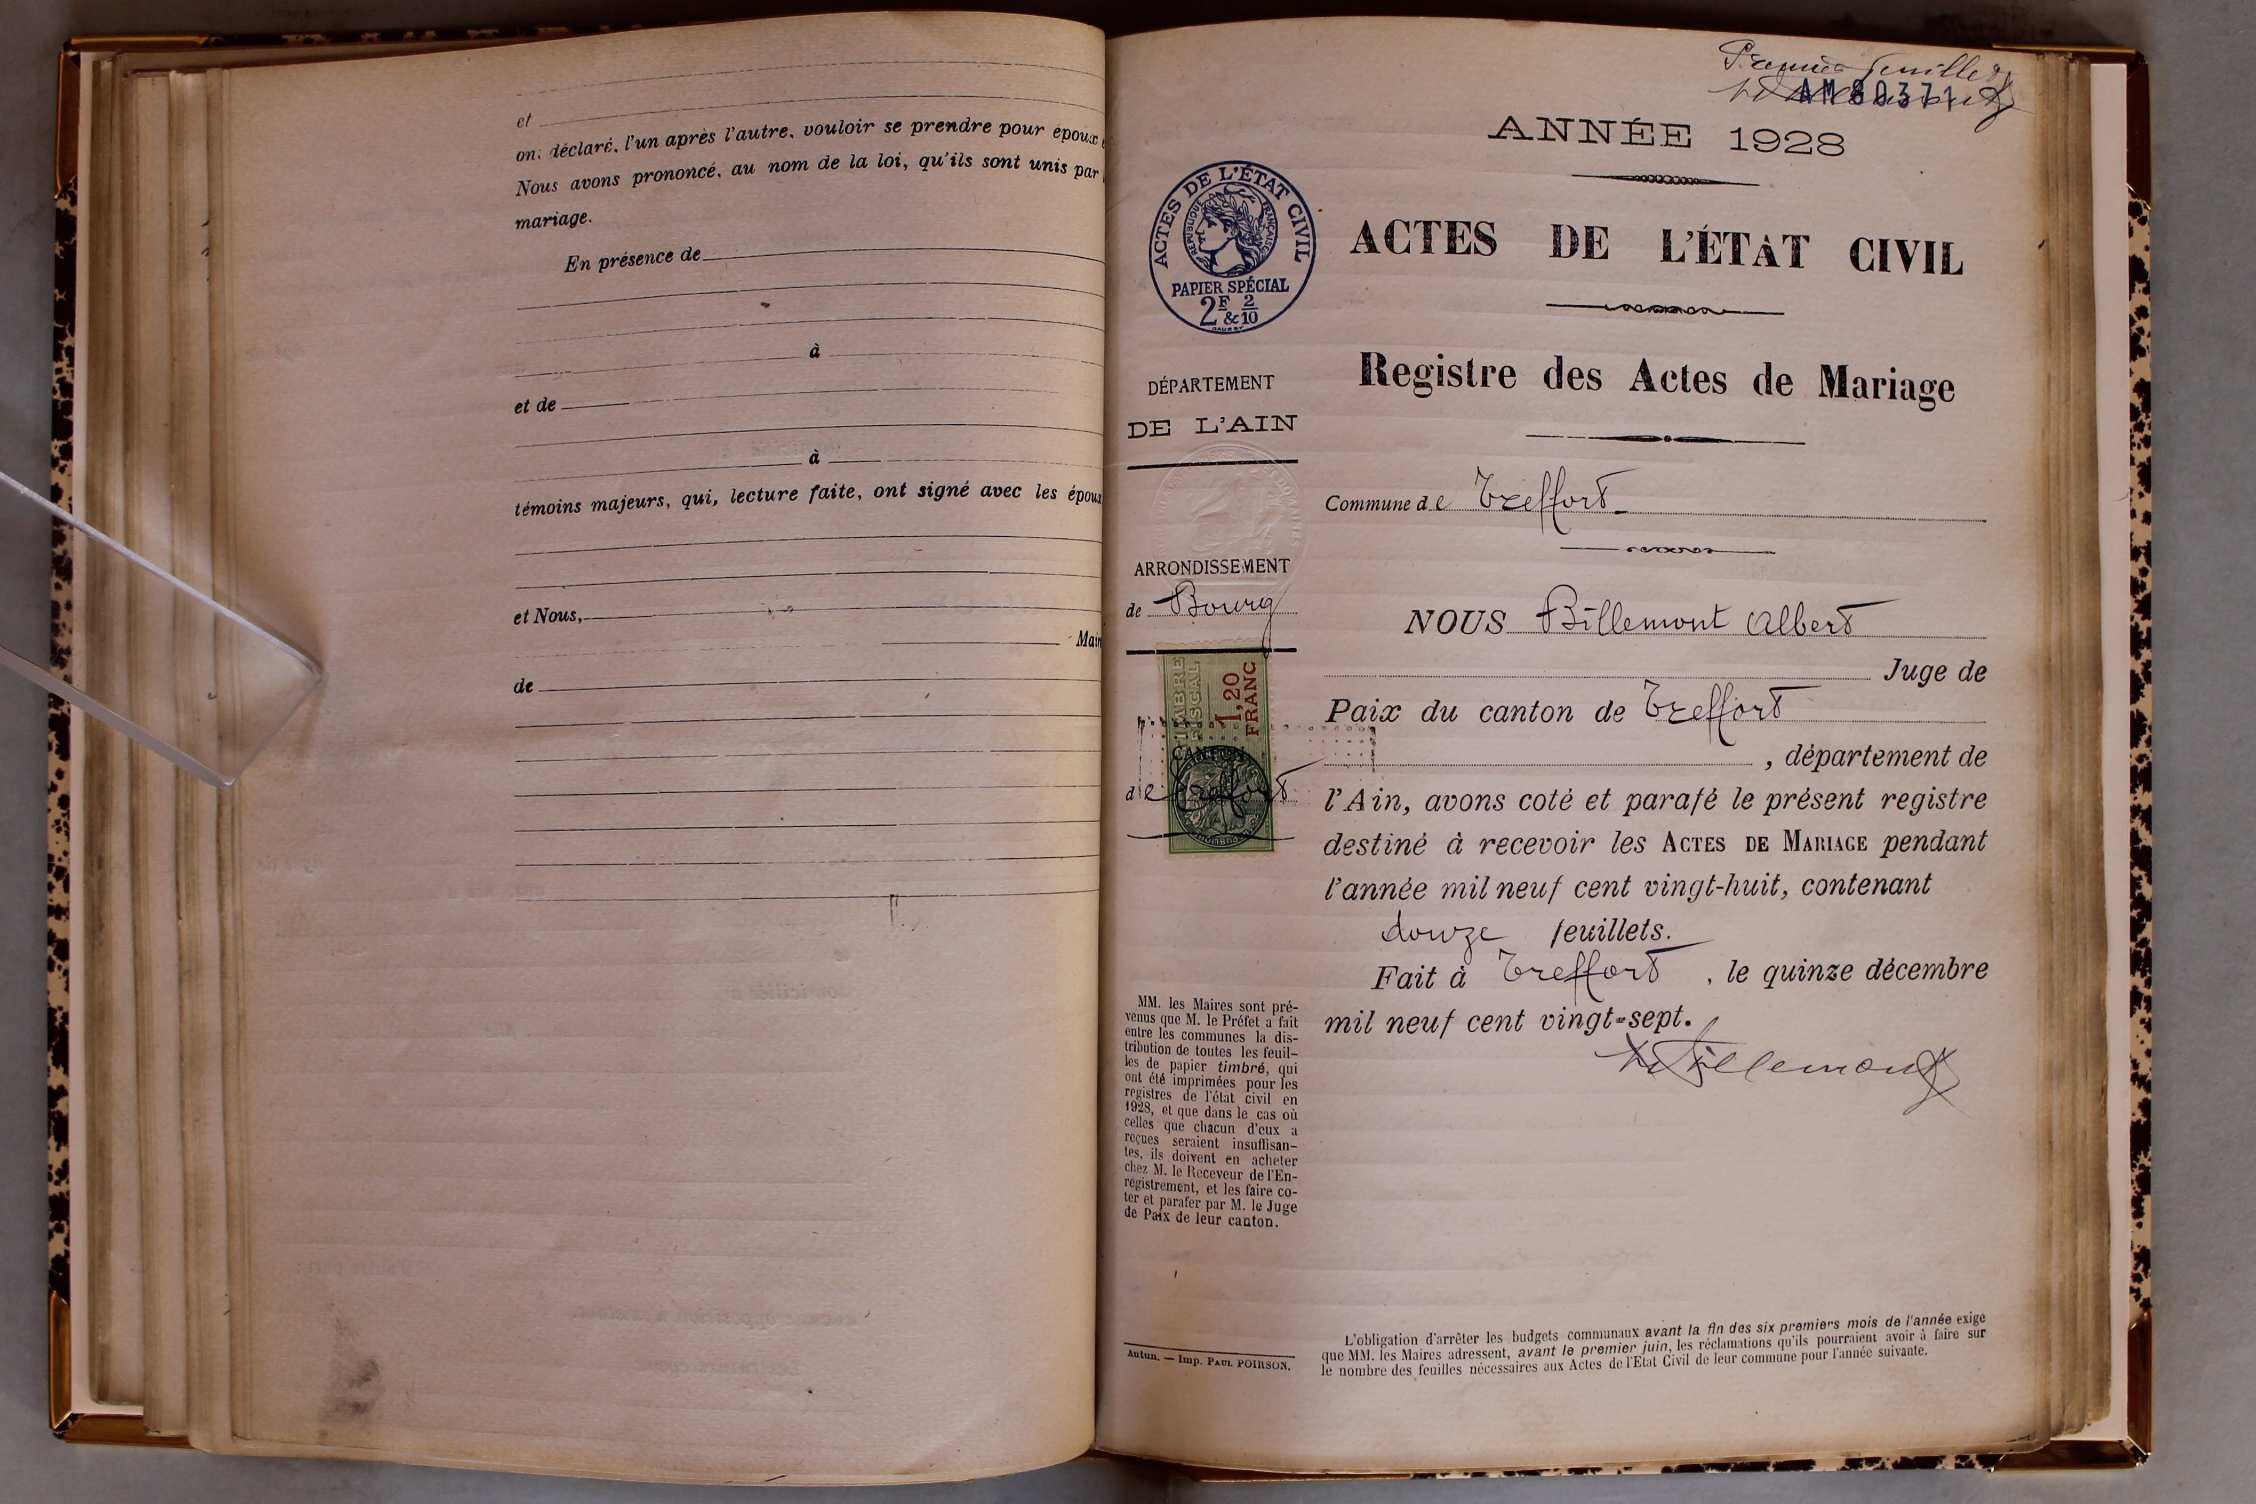 et
ont déclaré, l'un après l'autre, vouloir se prendre pour époux
Nous avons prononcé, au nom de la loi, qu'ils sont unis par
mariage.
En présence de
à
et de
à
témoins majeurs, qui, lecture faite, ont signé avec les époux
et Nous,
Mair
de
Premier feuillet
AM 80371
ANNÉE 1928
ACTES DE L'ÉTAT CIVIL
RÉPUBLIQUE FRANÇAISE
PAPIER SPÉCIAL
2F & 2/10
ACTES DE L'ÉTAT CIVIL
Registre des Actes de Mariage
DÉPARTEMENT
DE L'AIN
Commune de Treffort
ARRONDISSEMENT
de Bourg
TIMBRE
FISCAL
1,20
FRANC
CANTON
de Treffort
NOUS Billemont Albert
Juge de
Paix du canton de Treffort
, département de
l'Ain, avons coté et parafé le présent registre
destiné à recevoir les ACTES DE MARIAGE pendant
l'année mil neuf cent vingt-huit, contenant
douze feuillets.
Fait à Treffort, le quinze décembre
mil neuf cent vingt-sept.
Billemont
MM. les Maires sont pré-
venus que M. le Préfet a fait
entre les communes la dis-
tribution de toutes les feuil-
les de papier timbré, qui
ont été imprimées pour les
registres de l'état civil en
1928, et que dans le cas où
celles que chacun d'eux a
reçues seraient insuffisan-
tes, ils doivent en acheter
chez M. le Receveur de l'En-
registrement, et les faire co-
ter et parafer par M. le Juge
de Paix de leur canton.
Autun. — Imp. PAUL POIRSON.
L'obligation d'arrêter les budgets communaux avant la fin des six premiers mois de l'année exige
que MM. les Maires adressent, avant le premier juin, les réclamations qu'ils pourraient avoir à faire sur
le nombre des feuilles nécessaires aux Actes de l'Etat Civil de leur commune pour l'année suivante.